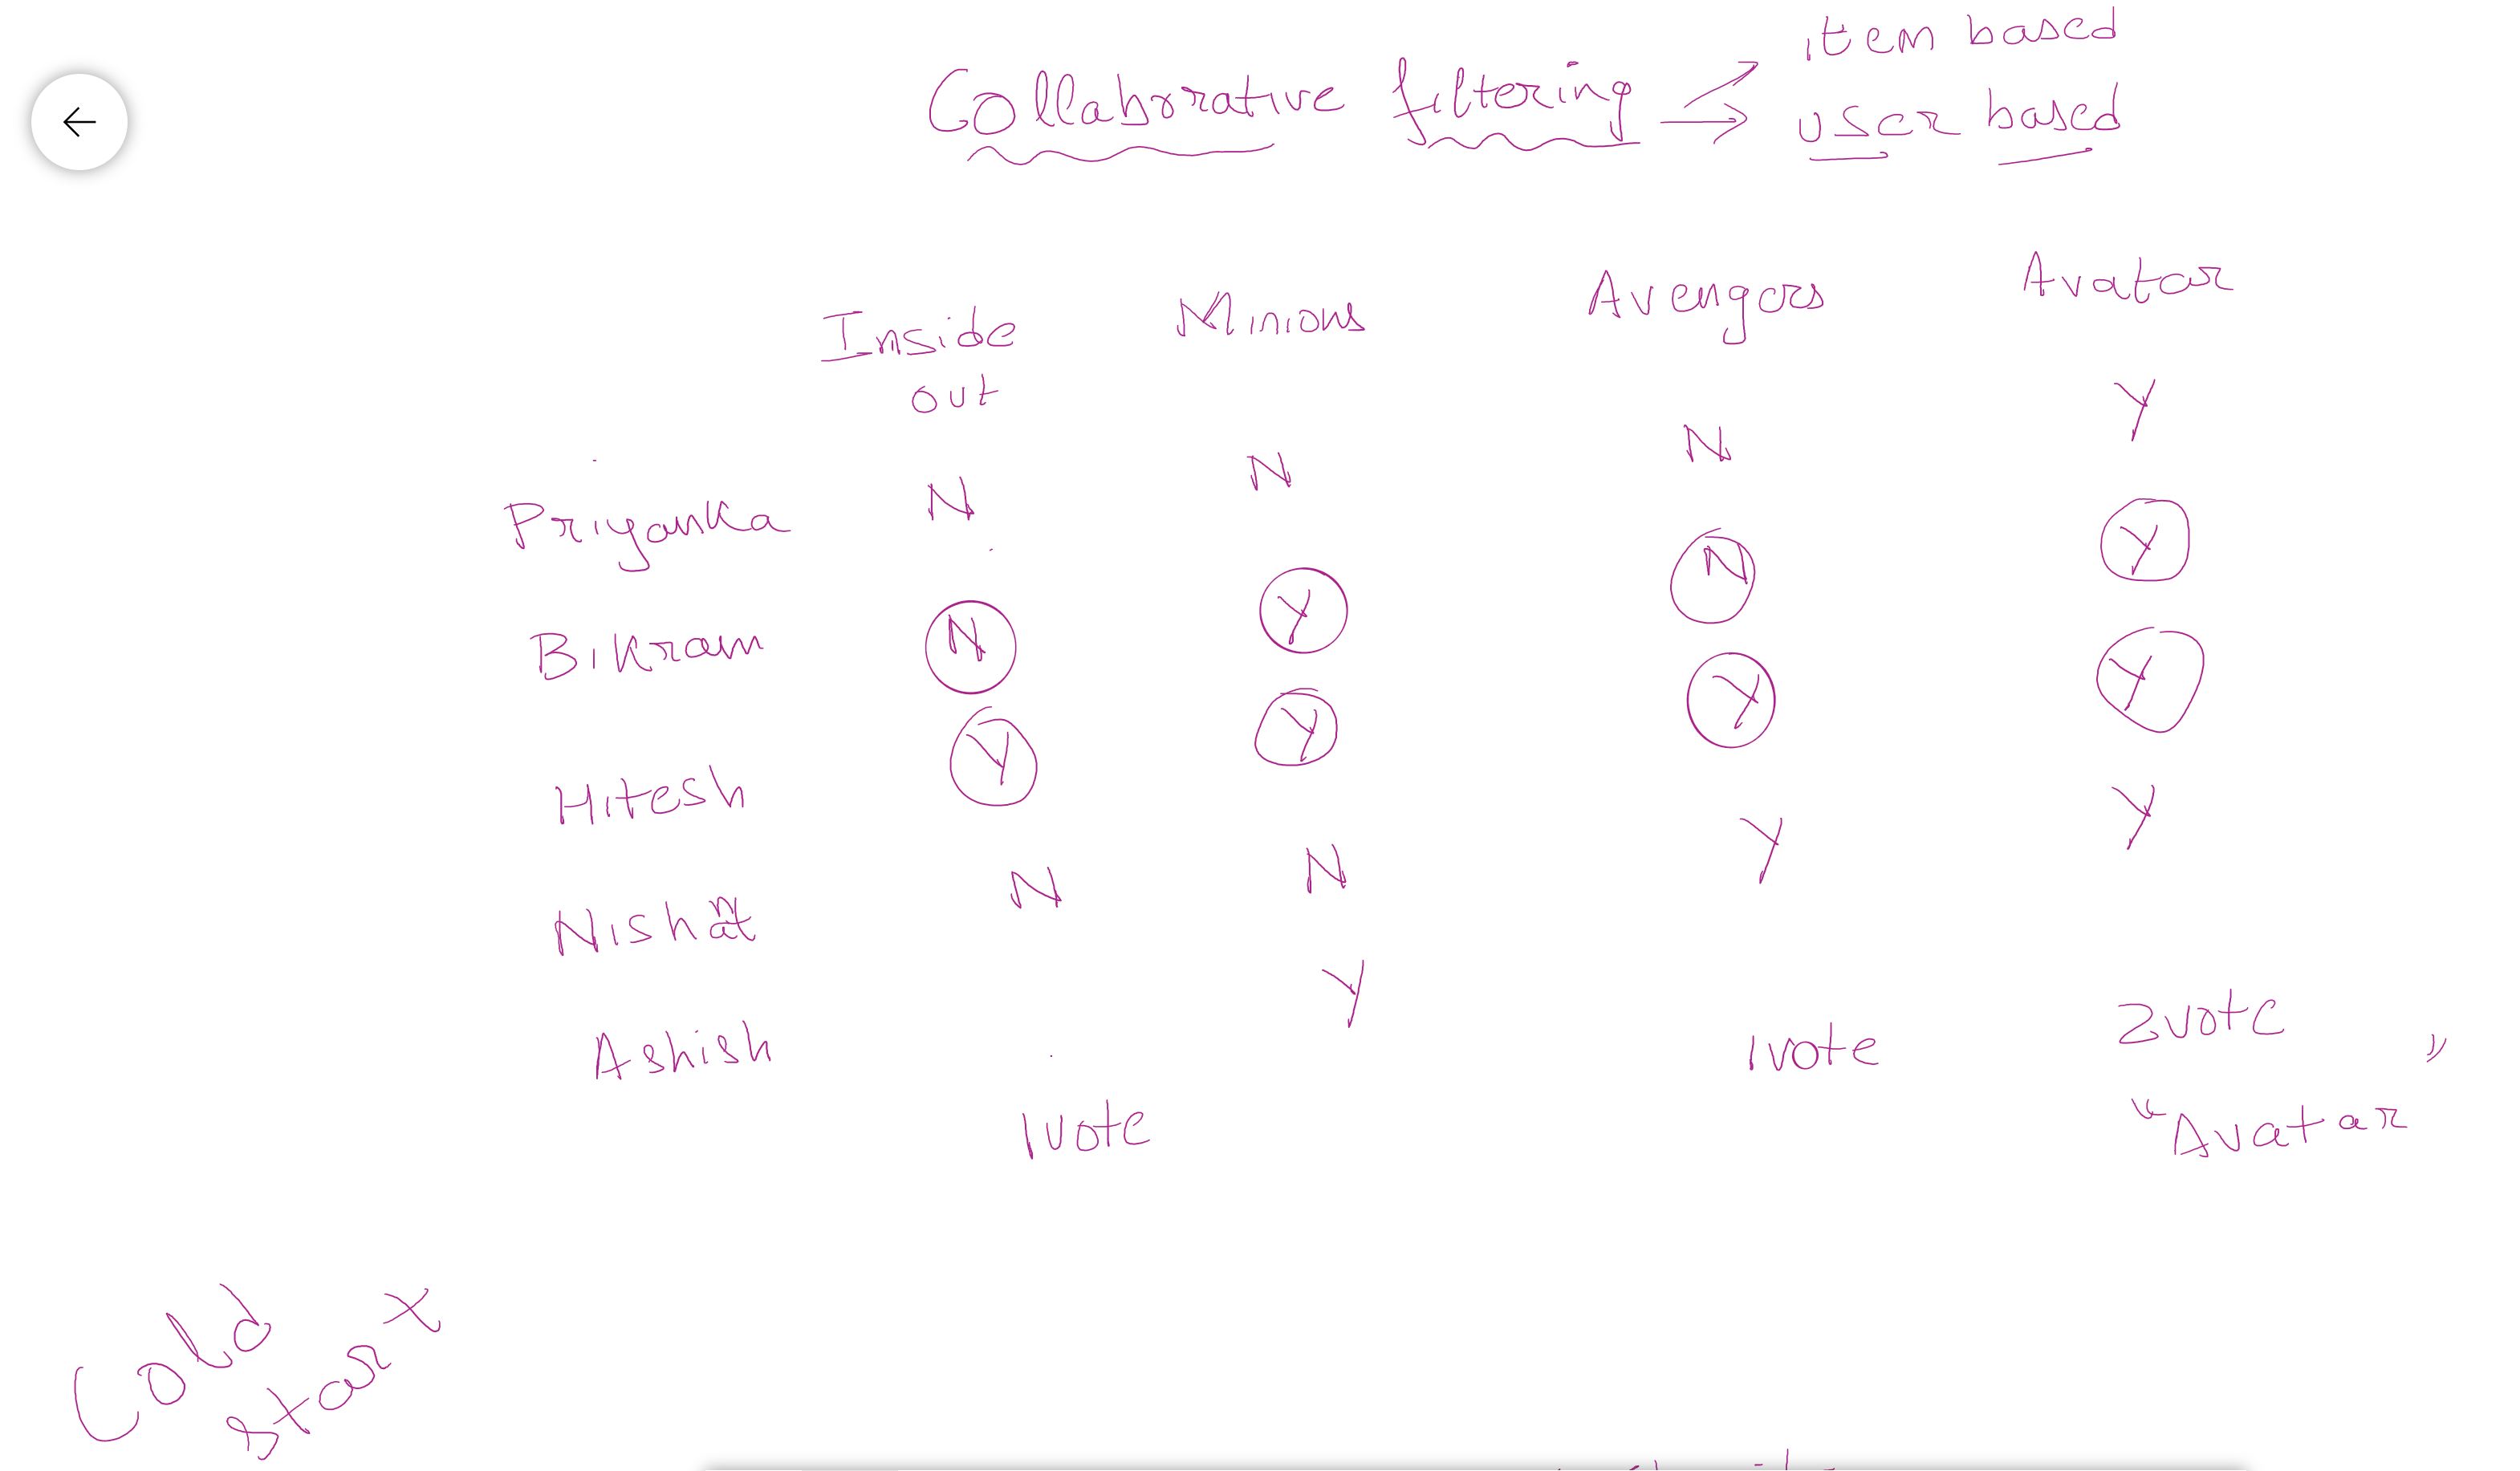 item based
Collaborative filtering
user based
Inside Minions Avengers Avatar
out
Priyanka N N N Y
Bikram N Y N Y
Hitesh Y Y Y Y
Nishant N N Y Y
Ashish Y
1vote 1vote 2vote
"Avatar"
Cold
start